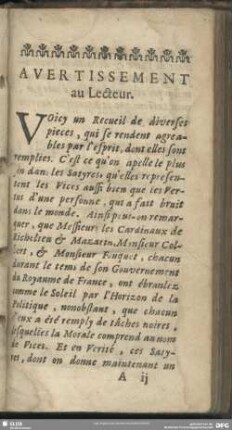 AVERTISSEMENT
au Lecteur.
VOicy un Recueil de diverses
pieces, qui se rendent agrea-
bles par l'esprit, dont elles sont
remplies. C'est ce qu'on apelle le plus
dans les Satyres qu'elles represen-
tent les Vices aussi bien que les Ver-
tus d'une personne, qui a fait bruit
dans le monde. Ainsi peut-on remar-
quer, que Messieurs les Cardinaux de
Richelieu & Mazarin, Monsieur Col-
bert, & Monsieur Fouquet, chacun
durant le tems de son Gouvernement
du Royaume de France, ont ébranlez
comme le Soleil par l'Horizon de la
Politique, nonobstant, que chacun
d'eux a été remply de tâches noires,
lesquelles la Morale comprend au nom
de Vices. Et en Verité, ces Saty-
res, dont on donne maintenant un
A ij
SLUB